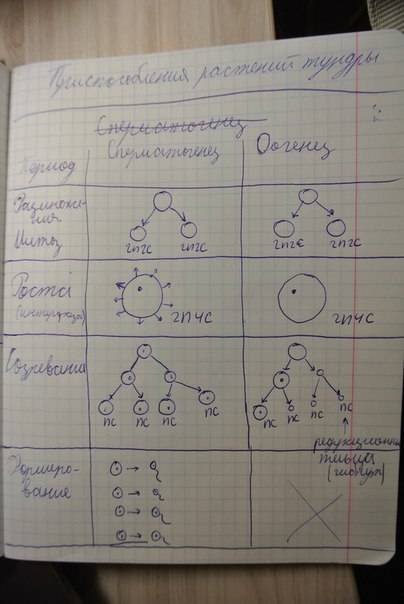 Приспособления растений тундры
Сперматогенец
Период
Сперматогенец
Оогенец
Размноже-
ния
Митоз
2n2c
2n2c
2n2c
2n2c
Роста
(интерфаза)
2n4c
2n4c
Созревания
nc
nc
nc
nc
nc
nc
nc
nc
редукционные
тельца
Формиро-
вание